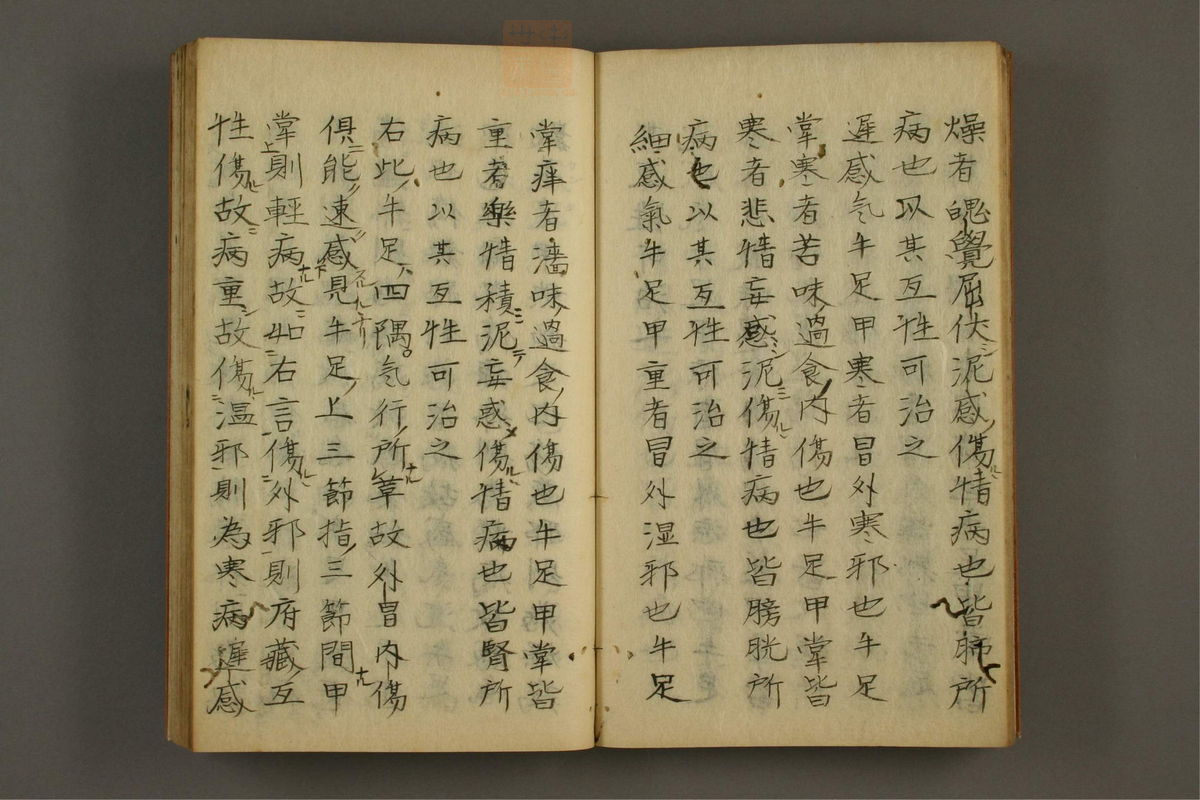 燥者魄覺屈伏ニ泥感ノ傷ルハ情病也皆肺所
病也以其互性可治之
遅感気牛足甲寒者冒外寒邪也牛足
掌寒者苦味過食ノ内傷也牛足甲掌皆
寒者悲情妄惑泥ニ傷ルハ情病也皆膀胱所
病也以其互性可治之
細感氣牛足甲重者冒外湿邪也牛足
掌痒者味過食ノ内傷也牛足甲掌皆
重者樂情積ニ泥テ妄惑傷ルハ情病也皆腎所
病也以其互性可治之
右此ノ牛足ハ四隅気行ノ所ナレ故外冒内傷
倶ニ能ク速感見牛足ノ上三節指ノ三節間ナル甲
掌上則輕病ナル故ニ如右言傷ルニ外邪則府藏ノ互
性傷ル故ニ病重シ故傷ルニ温邪則為寒病遅感